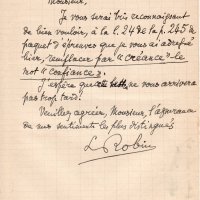 Monsieur,
Je vous serai très reconnaissant
de bien vouloir, à la l. 24 de la p. 245 du
paquet d'épreuves que je vous ai adressé
hier, remplacer par "créance" le
mot "confiance".
J'espère que ce ne vous arrivera
pas trop tard.
Veuillez agréer, Monsieur, l'assurance
de mes sentiments les plus distingués
L. Robin